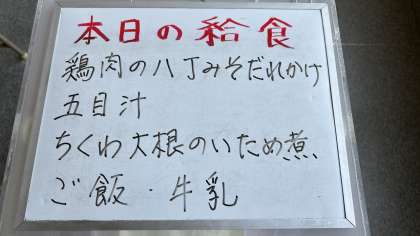 本日の給食
鶏肉の八丁みそだれかけ
五目汁
ちくわ大根のいため煮
ご飯・牛乳